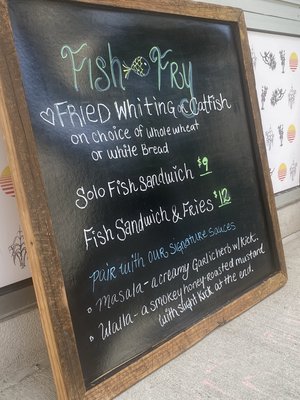 Fish Fry
FRIED Whiting or Catfish
on choice of whole wheat
or white Bread
Solo Fish sandwich $9
Fish Sandwich & Fries $12
Pair with our signature sauces
• Masala - a creamy Garlic herb w/ kick.
• Walla - a smokey honey-roasted mustard
with slight kick at the end.